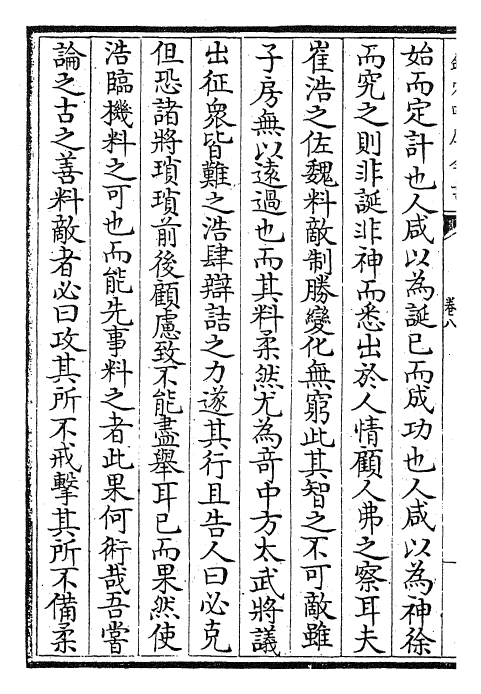 卷八
始而定計也人咸以為誕已而成功也人咸以為神徐
而究之則非誕非神而悉出於人情顧人弗之察耳夫
崔浩之佐魏料敵制勝變化無窮此其智之不可敵雖
子房無以遠過也而其料柔然尤為竒中方太武將議
出征衆皆難之浩肆辯詰之力遂其行且告人曰必克
但恐諸將瑣瑣前後顧慮致不能盡舉耳已而果然使
浩臨機料之可也而能先事料之者此果何術哉吾嘗
論之古之善料敵者必曰攻其所不戒擊其所不備柔